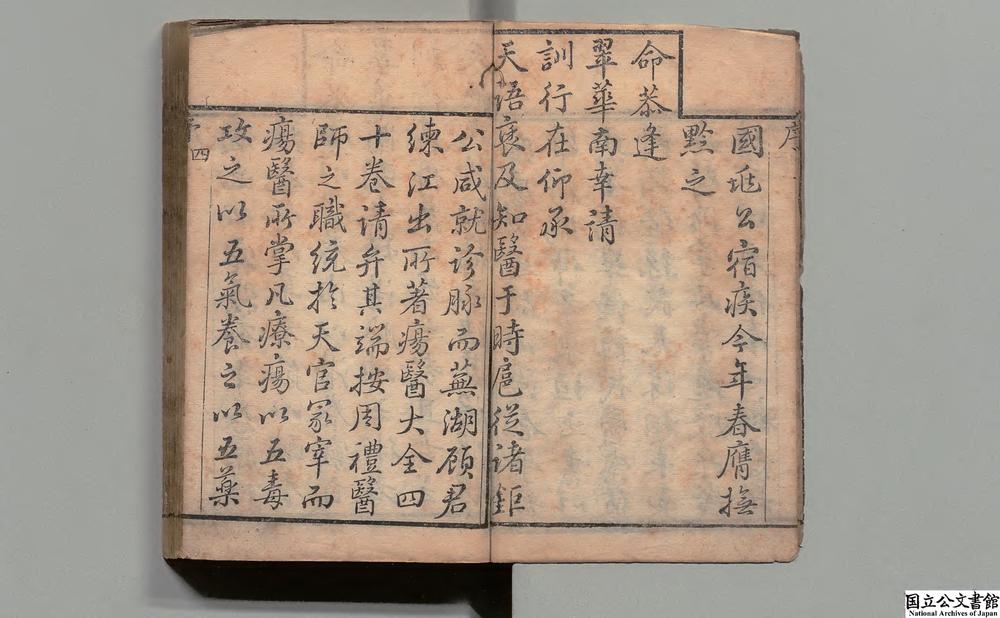 序
國公宿疾今年春膺撫
黔之
命恭逢
翠華南幸請
訓行在仰承
天語褒及知醫于時扈從諸鉅
公咸就診脉而蕪湖顧君
練江出所著瘍醫大全四
十卷請弁其端按周禮醫
師之職統於天官冢宰而
瘍醫所掌凡療瘍以五毒
攻之以五氣養之以五藥
四
国立公文書館
National Archives of Japan